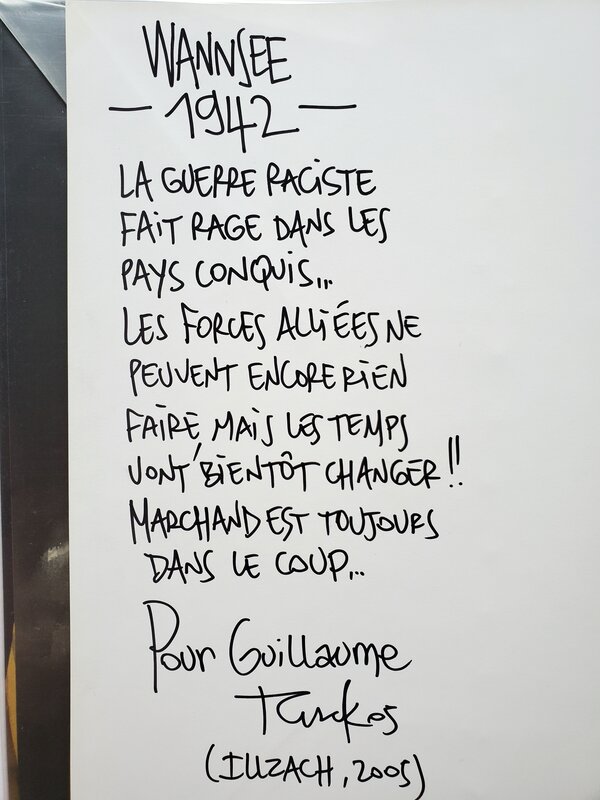 WANNSEE
— 1942 —
LA GUERRE RACISTE
FAIT RAGE DANS LES
PAYS CONQUIS...
LES FORCES ALLIÉES NE
PEUVENT ENCORE RIEN
FAIRE, MAIS LES TEMPS
VONT BIENTÔT CHANGER!!
MARCHAND EST TOUJOURS
DANS LE COUP...
Pour Guillaume
(ILLZACH, 2005)